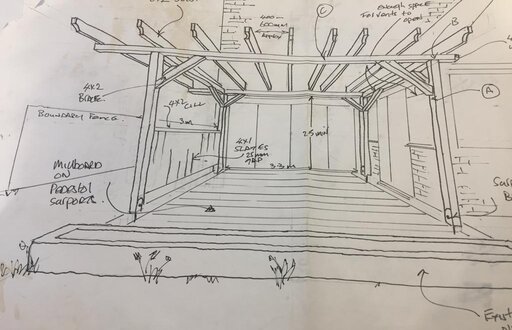 400-
600mm
Approx
C
enough space
For vents to
open
B
A
4x2
BRACE
4x2 CILL
BOUNDARY FENCE.
3m
4x1
SLATES
25mm
GAP
2.5 min
3.3m
Millboard
ON
Pedestal
Supports.
B
Exist